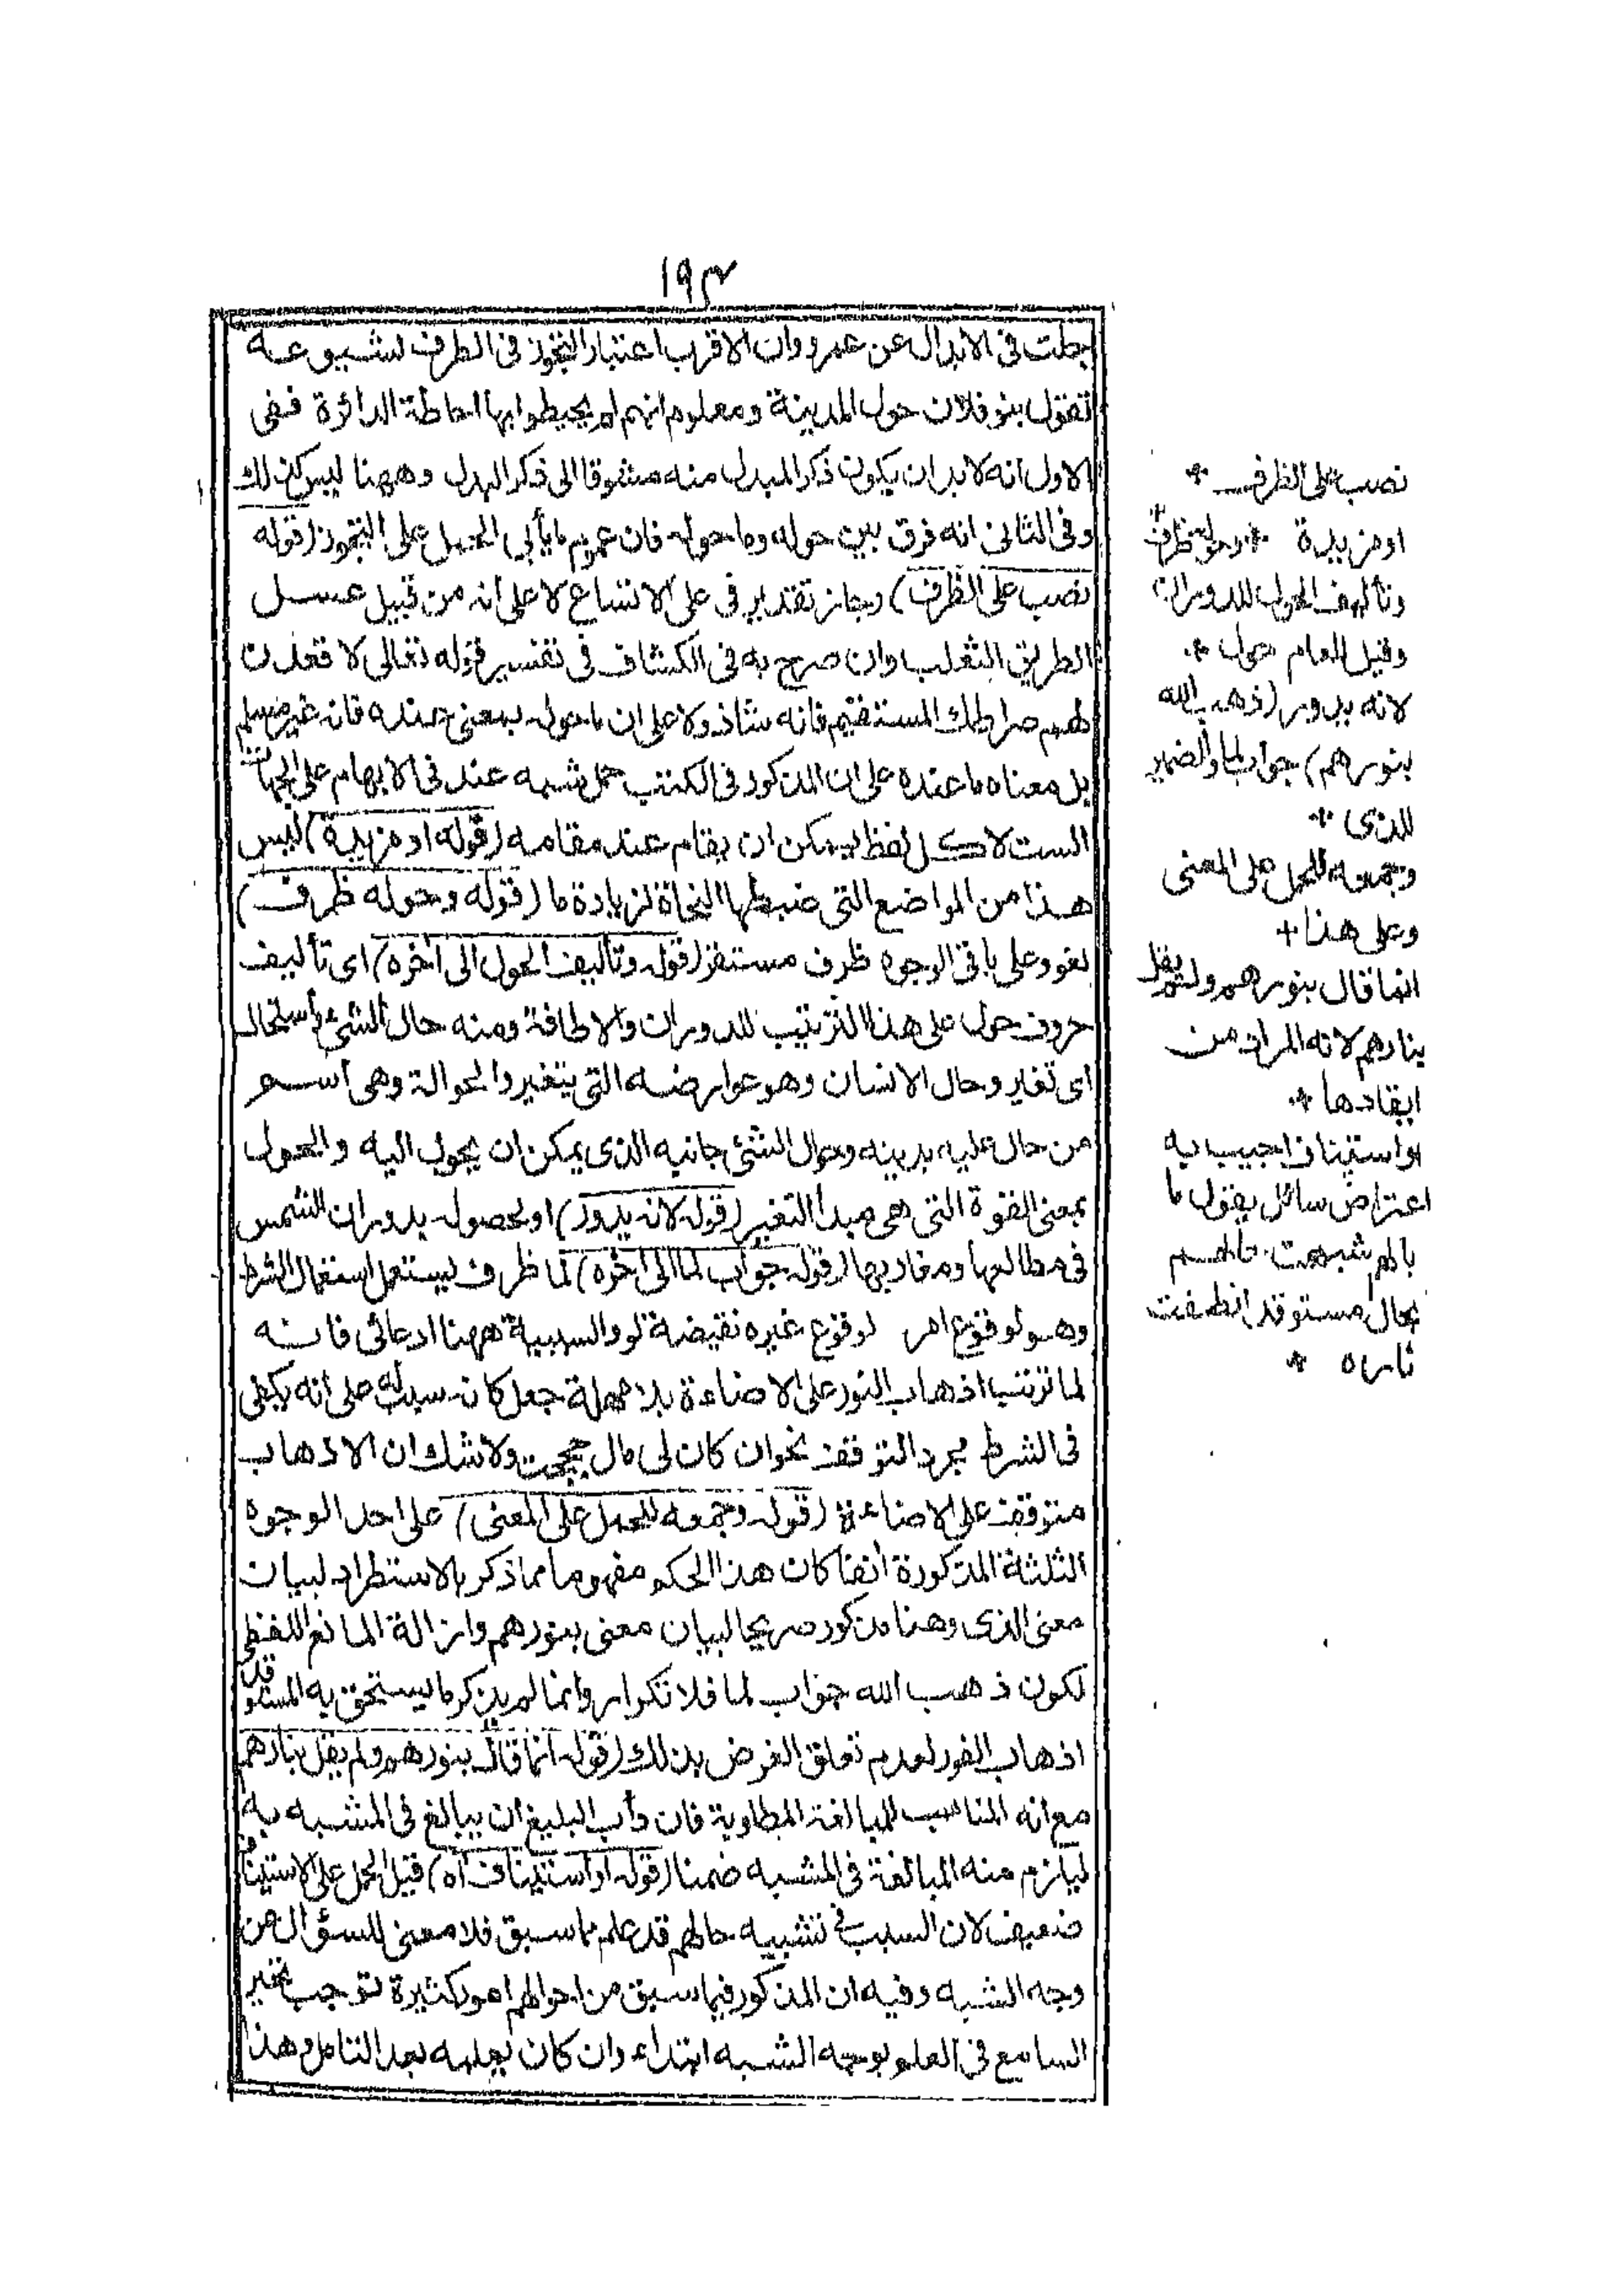 ١٩٣
جعلت فى الابدال عن عمرو وان الاقرب اعتبار التجوز فى الظرف لشيوعه
تقول بنو فلان حول المدينة ومعلوم انهم لم يحيطوا بها احاطة الدائرة ففى
الاول انه لابد ان يكون ذكر المبدل منه مشوقا الى ذكر البدل وههنا ليس كذلك
وفى الثانى انه فرق بين حوله وما حوله فان عموم ما يأبى الحمل على التجوز (قوله
نصب على الظرف) وجاز تقدير فى على الاتساع لا على انه من قبيل عسل
الطريق الثعلب وان صرح به فى الكشاف فى تفسير قوله تعالى لا قعدن
لهم صراطك المستقيم فانه شاذ ولا على ان ما حوله بمعنى عنده فانه غير مسلم
بل معناه ما عنده على ان المذكور فى الكتب حمل شبه عند فى الابهام على الجهات
الست لا كل لفظ يمكن ان يقام عند مقامه (قوله او مزيدة) ليس
هذا من المواضع التى ضبطها النحاة لزيادة ما (قوله وحوله ظرف)
لغو وعلى باقى الوجوه ظرف مستقر (قوله وتأليف الحول الى اخره) اى تأليف
حروف حول على هذا الترتيب للدوران والاطافة ومنه حال الشئ واستحال
اى تغير وحال الانسان وهو عوارضه التى يتغير والحوالة وهى اسم
من حال عليه بدينه وحوال الشئ جانبه الذى يمكن ان يحول اليه والحول
بمعنى القوة التى هى مبدأ التغير (قوله لانه يدور) او لحصوله بدوران الشمس
فى مطالعها ومغاربها (قوله جواب لما الى اخره) لما ظرف يستعمل استعمال الشرط
وهو لوقوع امر لوقوع غيره نقيضة لو والسببية ههنا ادعائى فانه
لما ترتب اذهاب النور على الاضاءة بلا مهلة جعل كانه سبب له على انه يكفى
فى الشرط مجرد التوقف نحو ان كان لى مال حججت ولا شك ان الاذهاب
متوقف على الاضاءة (قوله وجمعه للحمل على المعنى) على احد الوجوه
الثلثة المذكورة انفا كان هذا الحكم مفهوما مما ذكر بالاستطراد لبيان
معنى الذى وهنا مذكور صريحا لبيان معنى بنورهم وازالة المانع اللفظى
لكون ذهب الله جواب لما فلا تكرار وانما لم يذكر ما يستحق به المستوقد
اذهاب النور لعدم تعلق الغرض بذلك (قوله انما قال بنورهم ولم يقل بنارهم
مع انه المناسب للمبالغة المطلوبة فان دأب البليغ ان يبالغ فى المشبه به
ليلزم منه المبالغة فى المشبه ضمنا (قوله او استيناف اه) قيل الحمل على الاستيناف
ضعيف لان السبب فى تشبيه حالهم قد علم مما سبق فلا معنى للسؤال عن
وجه الشبه وفيه ان المذكور فيما سبق من احوالهم امور كثيرة توجب تحير
السامع فى العلم بوجه الشبه ابتداء وان كان يعلمه بعد التامل وهذا
نصب على الظرف *
او مزيدة * وحوله ظرف
وتأليف الحول للدوران
وقيل للعام حول *
لانه يدور (ذهب الله
بنورهم) جواب لما والضمير
للذى *
وجمعه للحمل على المعنى
وعلى هذا +
انما قال بنورهم ولم يقل
بنارهم لانه المراد من
ايقادها *
او استيناف اجيب به
اعتراض سائل يقول ما
بالهم شبهت حالهم
بحال مستوقد انطفئت
ناره *